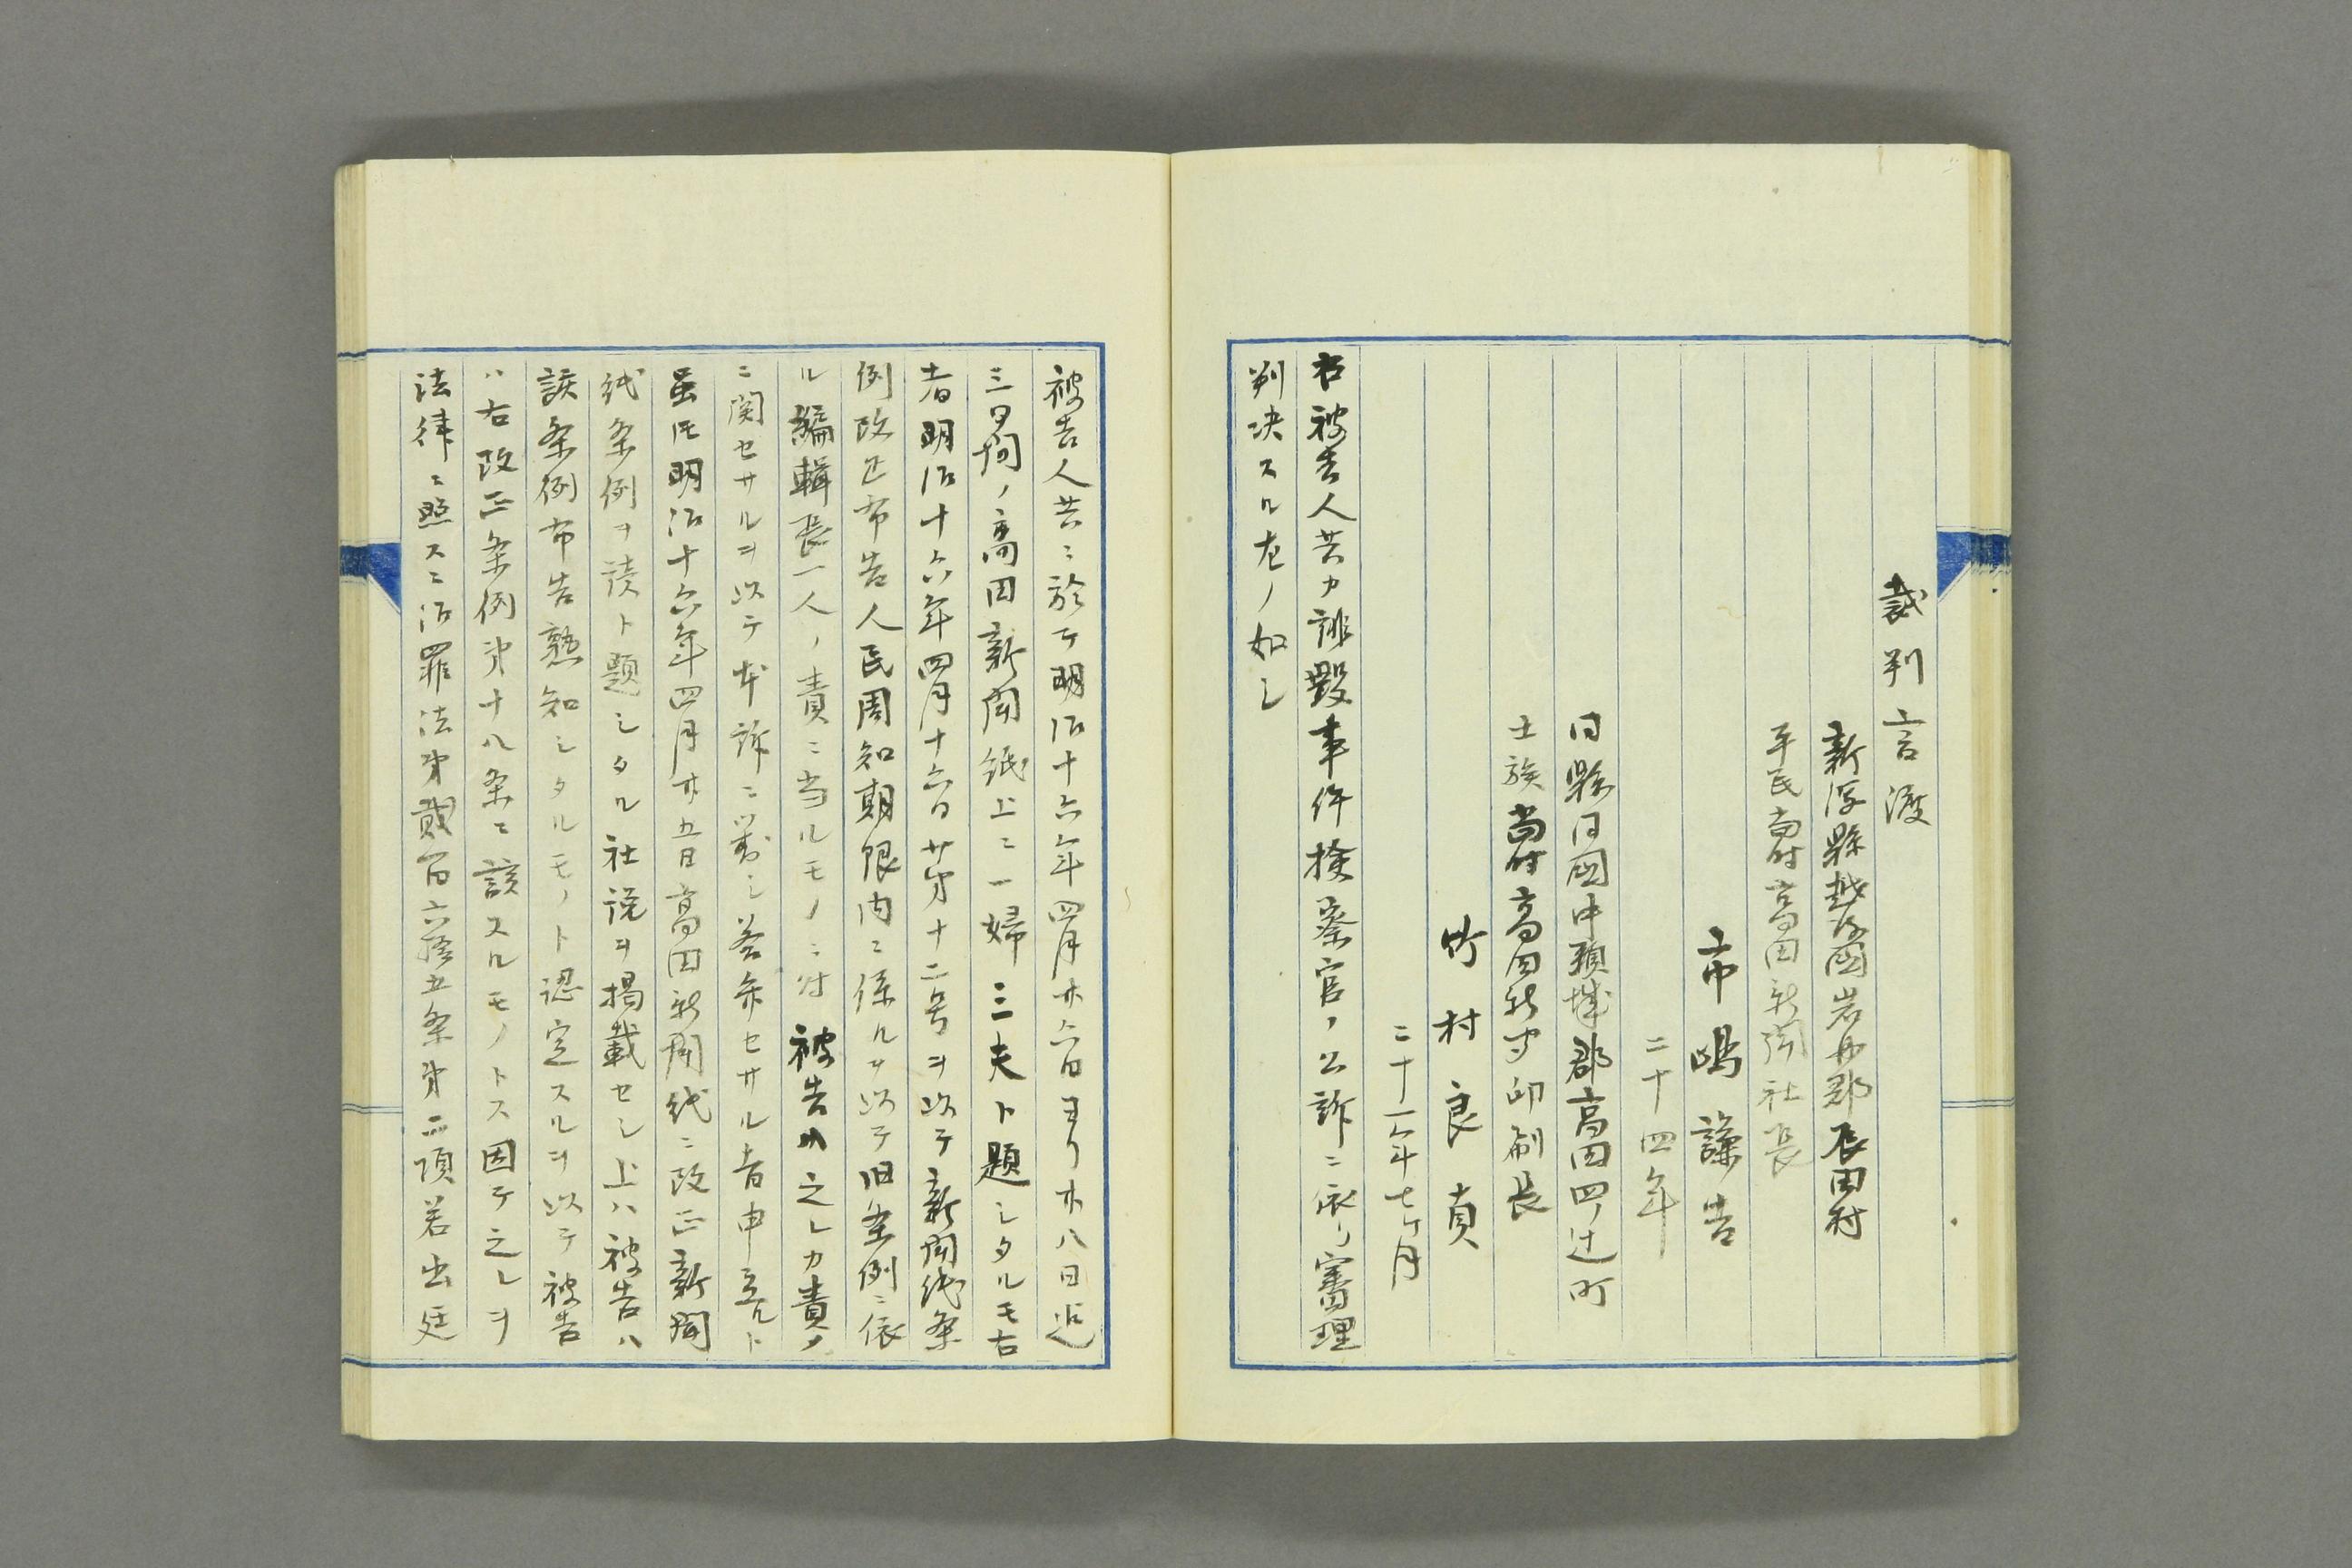 裁判言渡
新潟縣越後國岩船郡辰田村
平民当時高田新聞社長
市嶋謙吉
二十四年
同縣同國中頸城郡高田四ノ辻町
士族当時高田新聞印刷長
竹村良貞
二十一年七ケ月
右被告人共カ誹毀事件検察官ノ公訴ニ依リ審理
判決スル左ノ如シ
被告人共ニ於テ明治十六年四月廿六日ヨリ廿八日迄
三日間ノ高田新聞紙上ニ一婦三夫ト題シタルモ右
者明治十六年四月十六日廿第十二号ヲ以テ新聞紙条
例改正布告人民周知期限内ニ係ルヲ以テ旧条例ニ依
ル編輯長一人ノ責ニ当ルモノニ付被告共之レカ責ノ
ニ関セサルヲ以テ本訴ニ對シ答弁セサル者申立ルト
虽𪜈明治十六年四月廿五日高田新聞紙ニ改正新聞
紙条例ヲ読ト題シタル社説ヲ掲載セシ上ハ被告ハ
該条例布告熟知シタルモノト認定スルヲ以テ被告
ハ右改正条例第十八条ニ該スルモノトス因テ之レヲ
法律ニ照スニ治罪法第貮百六拾五条第二項若出廷